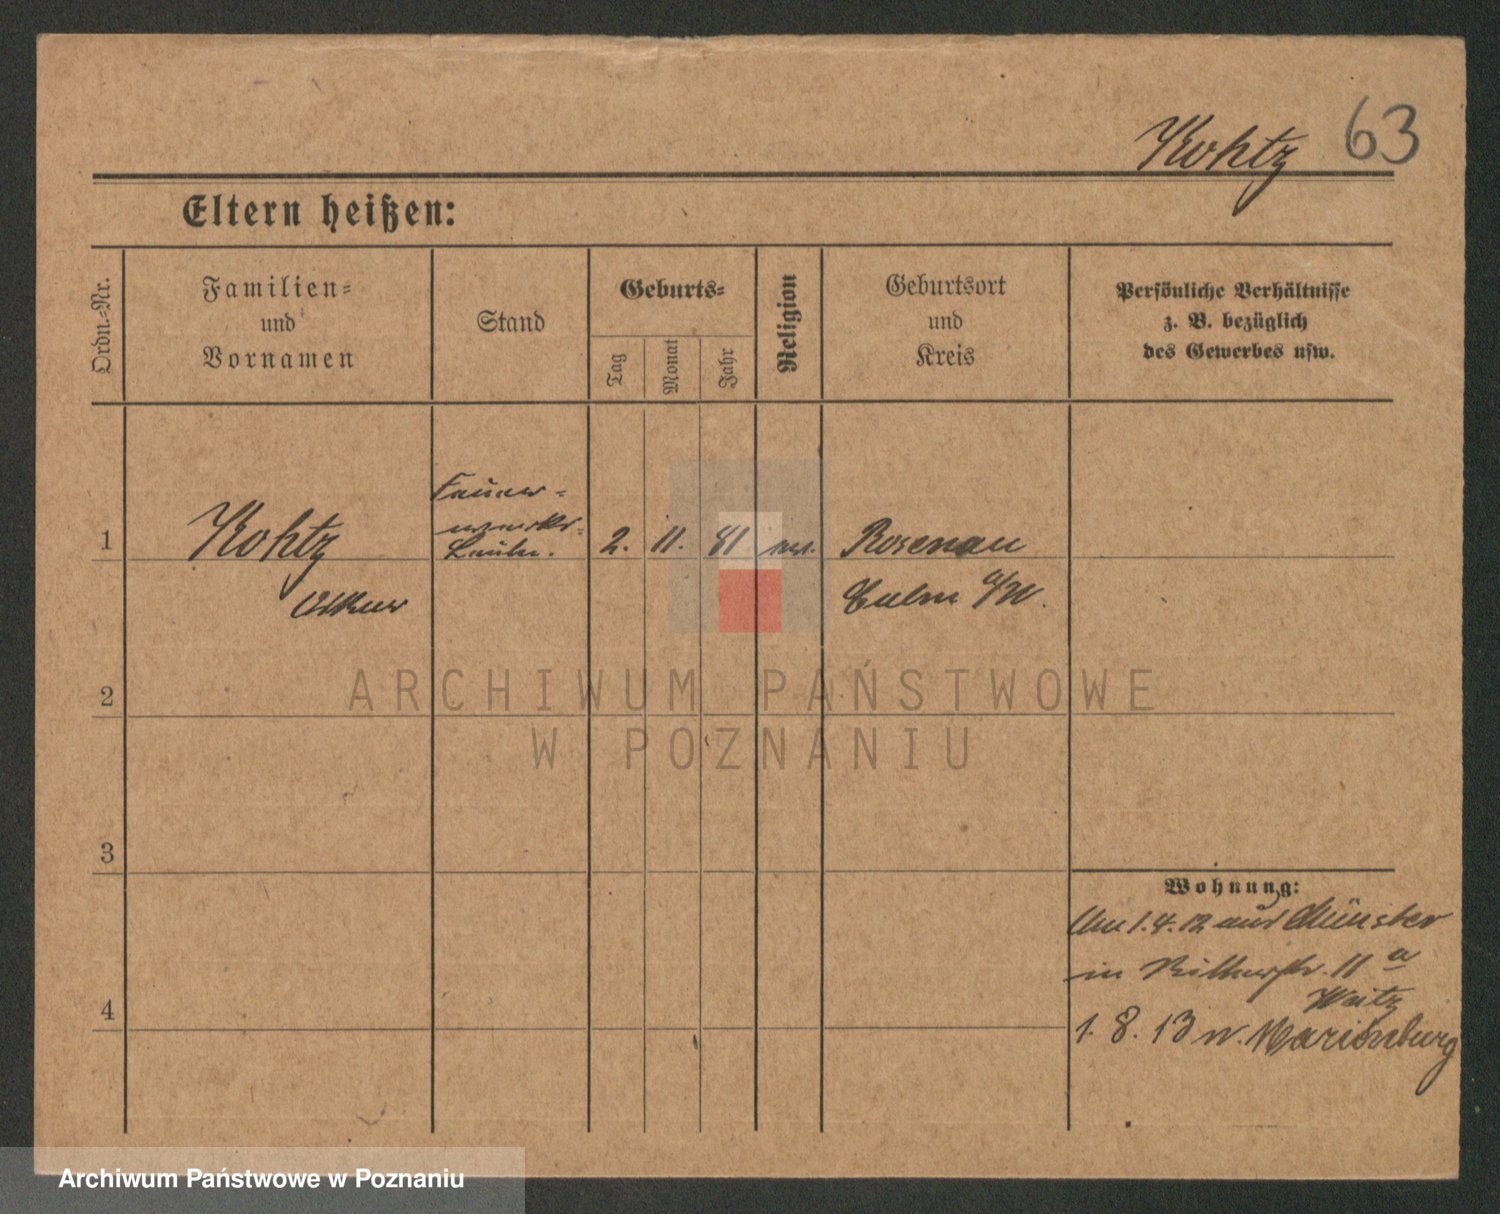 Kohtz 63
Eltern heißen:
Ordn.-Nr.
Familien-
und
Vornamen
Stand
Geburts-
Tag
Monat
Jahr
Religion
Geburtsort
und
Kreis
Persönliche Verhältnisse
z. B. bezüglich
des Gewerbes usw.
1 Kohtz 2. 11. 81 Rosenau
Culm a/W.
2
ARCHIWUM PAŃSTWOWE
W POZNANIU
3
Wohnung:
Am 1.4.12 aus Münster
in Ritterstr. 11 a
4
1. 8. 13 n. Marienburg
Archiwum Państwowe w Poznaniu